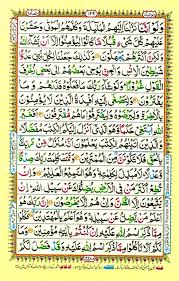 وَلَوْ اَنَّنَا نَزَّلْنَاۤ اِلَيْهِمُ الْمَلٰٓئِكَةَ وَكَلَّمَهُمُ الْمَوْتٰى وَحَشَرْنَا
عَلَيْهِمْ كُلَّ شَيْءٍ قُبُلًا مَّا كَانُوْا لِيُؤْمِنُوْۤا اِلَّاۤ اَنْ يَّشَآءَ اللّٰهُ
وَلٰكِنَّ اَكْثَرَهُمْ يَجْهَلُوْنَ وَكَذٰلِكَ جَعَلْنَا لِكُلِّ نَبِيٍّ عَدُوًّا
شَيٰطِيْنَ الْاِنْسِ وَالْجِنِّ يُوْحِيْ بَعْضُهُمْ اِلٰى بَعْضٍ زُخْرُفَ
الْقَوْلِ غُرُوْرًا وَلَوْ شَآءَ رَبُّكَ مَا فَعَلُوْهُ فَذَرْهُمْ وَمَا
يَفْتَرُوْنَ وَلِتَصْغٰۤى اِلَيْهِ اَفْـِٕدَةُ الَّذِيْنَ لَا يُؤْمِنُوْنَ
بِالْاٰخِرَةِ وَلِيَرْضَوْهُ وَلِيَقْتَرِفُوْا مَا هُمْ مُّقْتَرِفُوْنَ اَفَغَيْرَ
اللّٰهِ اَبْتَغِيْ حَكَمًا وَّهُوَ الَّذِيْۤ اَنْزَلَ اِلَيْكُمُ الْكِتٰبَ مُفَصَّلًا
وَالَّذِيْنَ اٰتَيْنٰهُمُ الْكِتٰبَ يَعْلَمُوْنَ اَنَّهٗ مُنَزَّلٌ مِّنْ رَّبِّكَ
بِالْحَقِّ فَلَا تَكُوْنَنَّ مِنَ الْمُمْتَرِيْنَ وَتَمَّتْ كَلِمَتُ رَبِّكَ صِدْقًا
وَّعَدْلًا لَا مُبَدِّلَ لِكَلِمٰتِهٖ وَهُوَ السَّمِيْعُ الْعَلِيْمُ وَاِنْ
تُطِعْ اَكْثَرَ مَنْ فِي الْاَرْضِ يُضِلُّوْكَ عَنْ سَبِيْلِ اللّٰهِ اِنْ
يَّتَّبِعُوْنَ اِلَّا الظَّنَّ وَاِنْ هُمْ اِلَّا يَخْرُصُوْنَ اِنَّ رَبَّكَ هُوَ
اَعْلَمُ مَنْ يَّضِلُّ عَنْ سَبِيْلِهٖ وَهُوَ اَعْلَمُ بِالْمُهْتَدِيْنَ
فَكُلُوْا مِمَّا ذُكِرَ اسْمُ اللّٰهِ عَلَيْهِ اِنْ كُنْتُمْ بِاٰيٰتِهٖ مُؤْمِنِيْنَ
وَمَا لَكُمْ اَلَّا تَاْكُلُوْا مِمَّا ذُكِرَ اسْمُ اللّٰهِ عَلَيْهِ وَقَدْ فَصَّلَ لَكُمْ